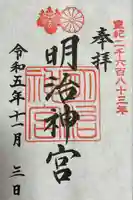 皇紀二千六百八十三年
奉拝
明治神宮
令和五年十一月三日